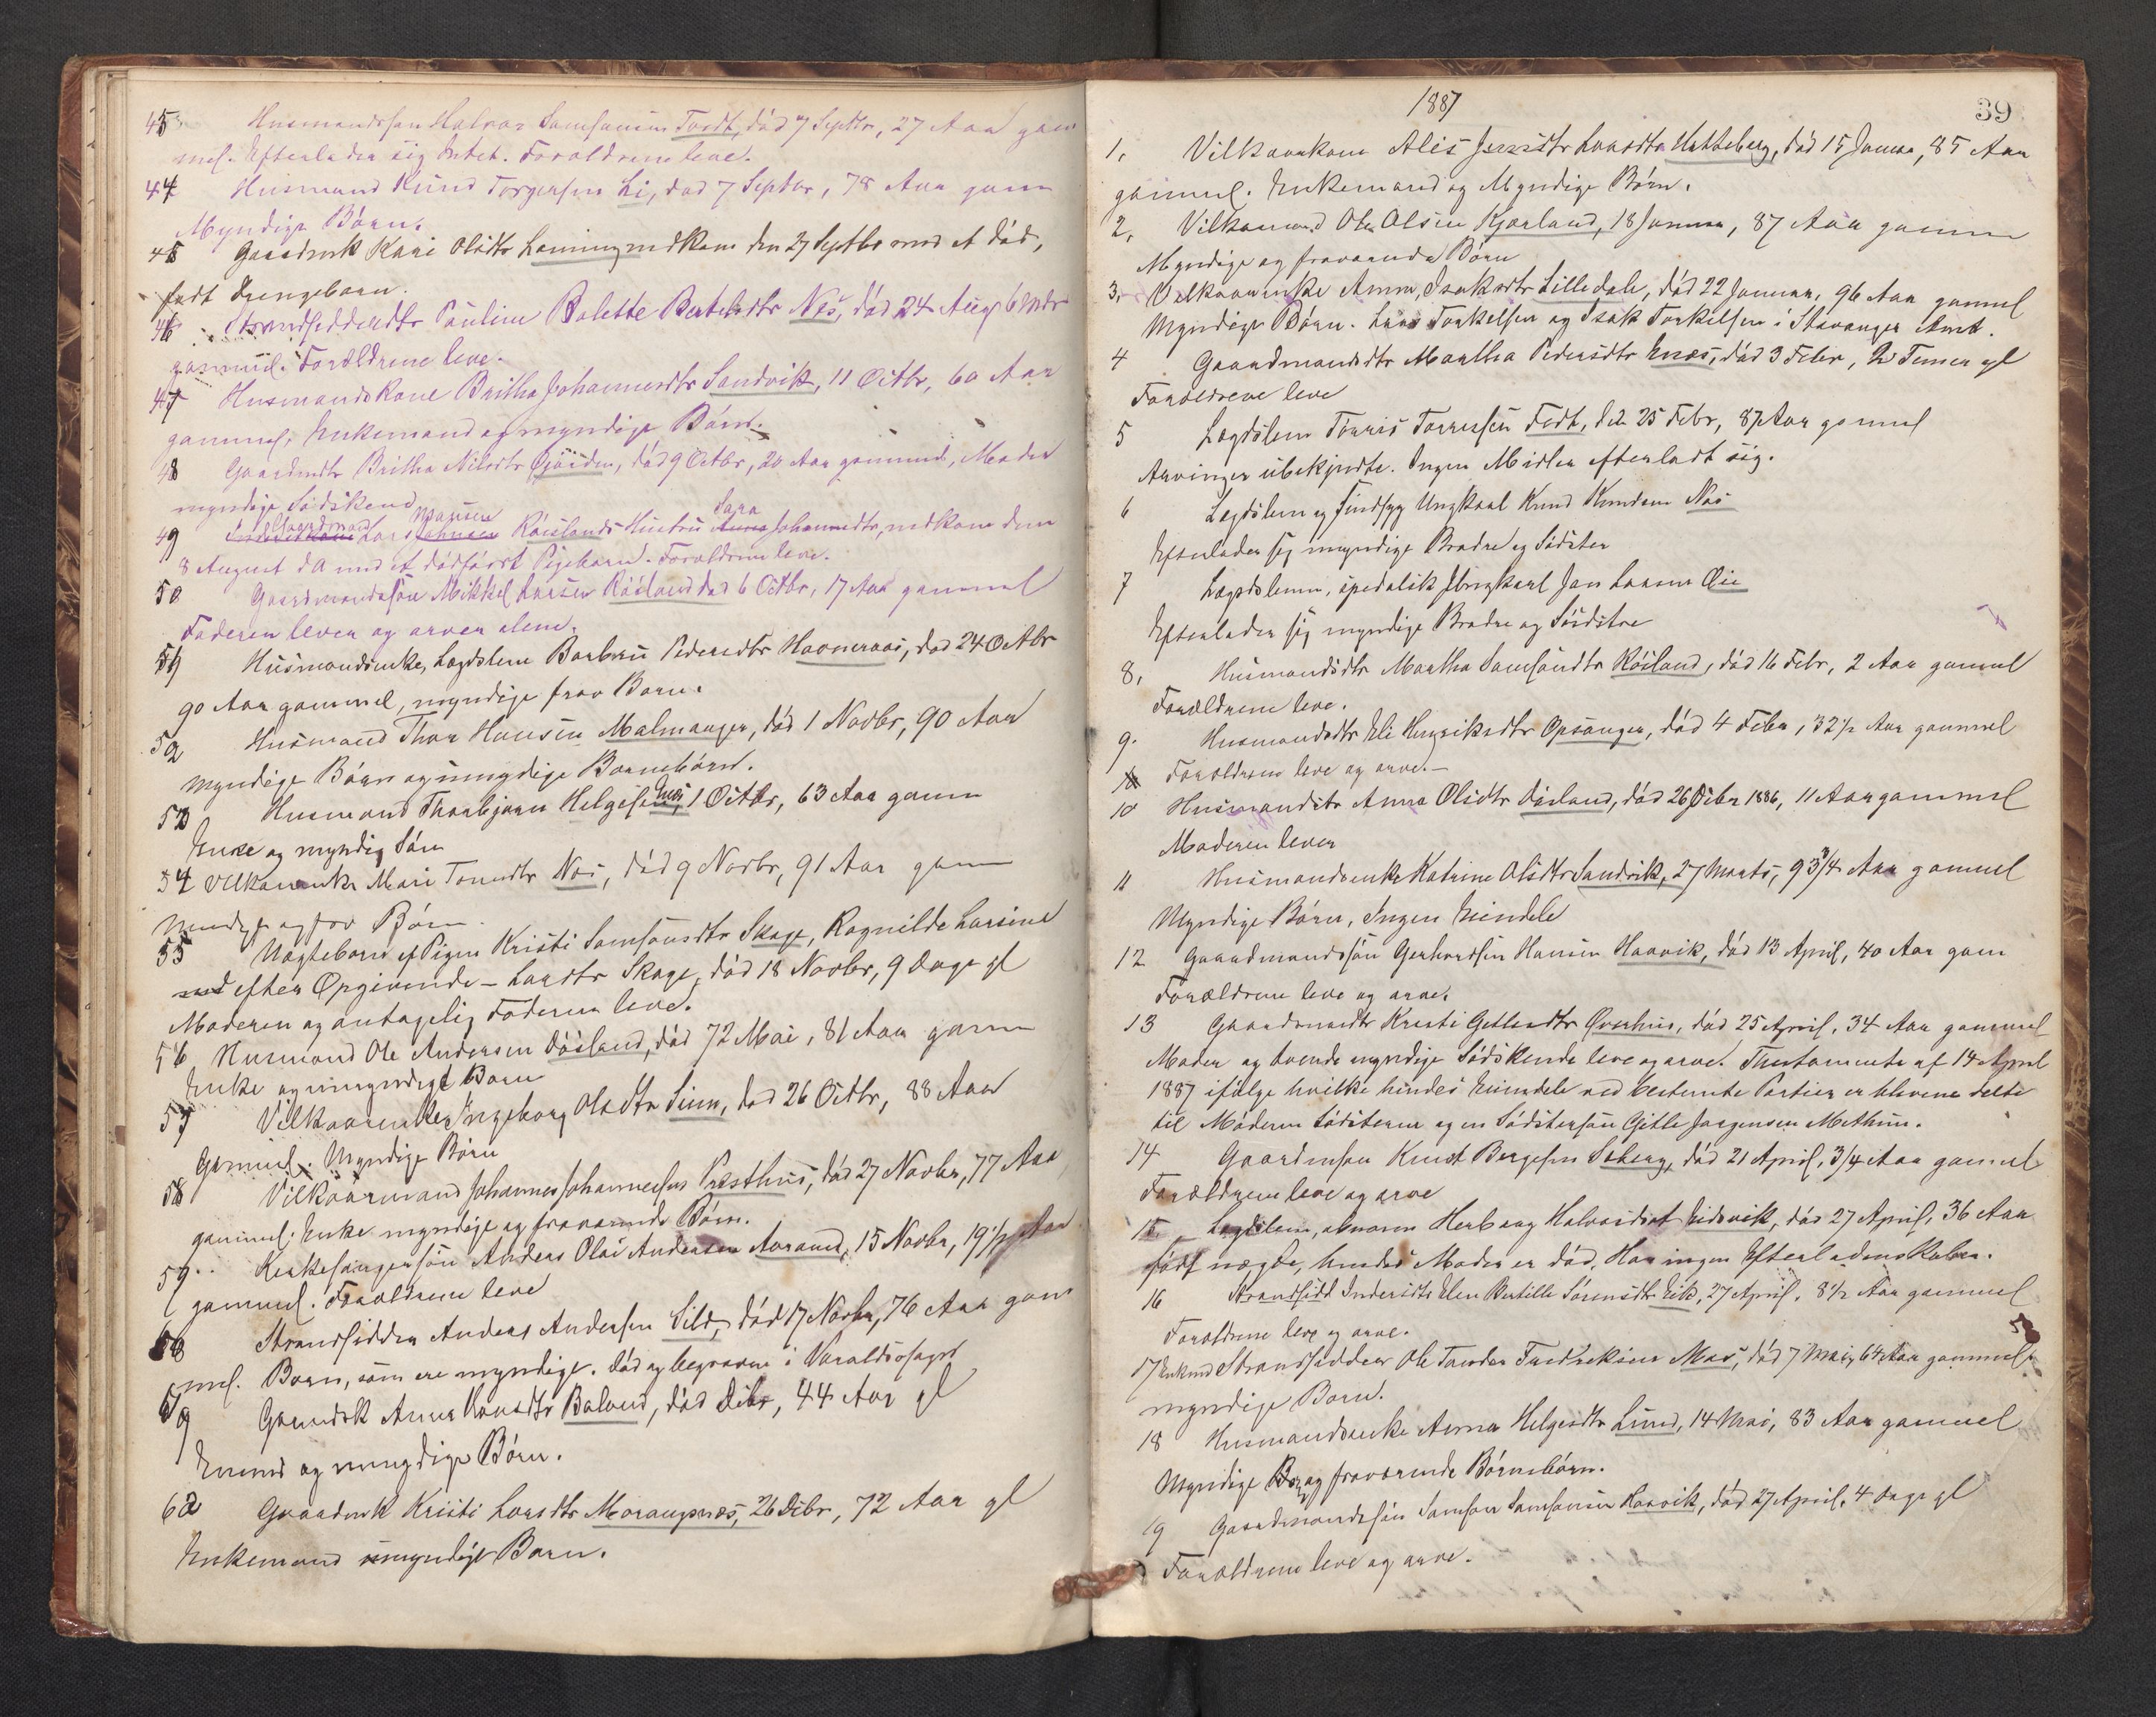 45 Husmandssøn Halvor Samsonsen Tvedt, død 7 Septbr, 27 Aar gam
mel. Efterlader sig Intet. Forældrene leve.
44 Husmand Knud Torgersen Li, død 7 Septbr, 78 Aar gam
Myndige Børn.
45 Gaardmk Kari Olsdtr nedkom den 27 Septbr med et død,
født Drengebarn.
46 Strandsidderdtr Pauline Bolette Bertelsdtr Næs, død 24 Aug 6 Mdr
gammel. Forældrene leve.
47 Husmandskone Britha Johannesdtr Sandvik, 11 Octbr, 60 Aar
gammel, Enkemand og myndige Børn.
48 Gaardmdtr Britha Nilsdtr Gjærden, død 9 Octbr, 20 Aar gammel, Moder
myndige Sødskend
Gaardmand Mansen Sara
49 Lars Johnsen Røislands Hustru Anna Johannesdtr, nedkom den
8 August d A med et dødfødt Pigebarn. Forældrene leve.
50 Gaardmandssøn Mikkel Larsen Røisland død 6 Octbr, 17 Aar gammel
Faderen lever og arver alene.
51 Husmandsenke, Lægdslem Barbru Pedersdtr Havneraas, død 24 Octbr
90 Aar gammel, myndige frav Børn.
52 Husmand Thor Hansen Malmanger, død 1 Novbr, 90 Aar
myndige Børn og umyndige Børnebørn.
53 Husmand Thorbjørn Helgesen Enæs, 1 Octbr, 63 Aar gamm
Enke og myndig Søn
54 Vilkaarenke Mari Tomdtr Næs, død 9 Novbr, 91 Aar gam
myndige og frav Børn.
55 Uægtebarn af Pigen Kristi Samsonsdtr Skage, Ragnilde Larsine
efter Opgivende - Larsdtr Skage, død 18 Novbr, 9 Dage gl
Moderen og antagelig Faderen leve.
56 Husmand Ole Andersen Døsland, død 72 Mai, 81 Aar gamm
Enke og umyndigt Barn
57 Vilkaarenke Ingeborg Olsdtr Sunn, død 26 Octbr, 88 Aar
Gammel. Myndige Børn
58 Vilkaarmand Johannes Johannessen Præsthus, død 27 Novbr, 77 Aar
gammel. Enke myndige og fraværende Børn.
59 Kirkesangersøn Anders Olai Andersen Aarand, 15 Novbr, 19½ Aar
gammel. Forældrene leve
58 Strandsidder Anders Andersen Sild, død 17 Novbr, 76 Aar gam
mel. Børn, som ere myndige. Død og begraven i Varaldsøsogn
59 Gaardmk Anna Knudsdtr Baland, død Debr, 44 Aar gl
Enkemd og umyndige Børn.
60 Gaardmk Kristi Larsdtr Morangsnæs, 26 Debr, 72 Aar gl
Enkemand umyndige Børn.
1887
39
1, Vilkaarkone Alis Jensdtr Hatteberg, død 15 Januar, 85 Aar
gammel. Enkemand og Myndige Børn.
2, Vilkaarmand Ole Olsen Kjærland, 18 Januar, 87 Aar gamm
Myndige og fraværende Børn
3, Vilkaarenke Anna Isaksdtr Lilledale, død 22 Januar, 96 Aar gammel
Myndige Børn. Lars Torkelsen og Isak Torkelsen i Stavanger Amt.
4 Gaardmandsdtr Martha Pedersdtr Enæs, død 3 Febr, 2 Timer gl
Forældrene leve
5 Lægdslem Torris Torressen Tvedt, død 25 Febr, 87 Aar gammel
Arvinger ubekjendte. Ingen Midler efterladt sig.
6 Lægdslem og Sindsyg Ungkarl Knud Knudsen Næs
Efterlader sig myndige Brødre og Søster
7 Lægdslem, spedalsk Ungkarl Jan Larsen Øie
Efterlader sig myndige Brødre og Søstre
8, Husmandsdtr Martha Samsonsdtr Røisland, død 16 Febr, 2 Aar gammel
Forældrene leve.
9. Husmandsdtr Eli Henriksdtr Opsanger, død 4 Febr, 32½ Aar gammel
Forældrene leve og arve.-
10 Husmandsdtr Anna Olsdtr Døsland, død 26 Debr 1886, 11 Aar gammel
Moderen lever
11 Husmandsenke Katrine Olsdtr Sandvik, 27 Marts, 93 3/4 Aar gammel
Myndige Børn, Ingen Eiendele
12 Gaardmandssøn Hansen Haavik, død 13 April, 40 Aar gam
Forældrene leve og arve.
13 Gaardmandsdtr Kristi Gitlesdtr Qverhus, død 25 April, 34 Aar gammel
Moder og tvende myndige Sødskende leve og arve. Thestamente af 14 April
1887 ifølge hvilke hendes Eiendele ved bestemte Partier er blevne delte
til Moderen Søsteren og en Søstersøn Gitle Jørgensen Methun.
14 Gaardmsøn Knut Børgesen Seberg, død 21 April, 3/4 Aar gammel
Forældrene leve og arve
15 Lægdslem, abnorm Herborg Halvorsdatt Eidsvik, død 27 April, 36 Aar
født uægte, hendes Moder er død. Har ingen Efterladenskaber.
16 Strandsidd Elen Bertille Sørensdtr Eik, 27 April, 8½ Aar gammel
Forældrene leve og arve.
17 Enkmd Strandsidder Ole Tander Fredriksen Næs, død 7 Mai, 64 Aar gammel
myndige Børn.
18 Husmandsenke Anna Helgesdtr Lund, 14 Mai, 83 Aar gammel
Myndige Børn og fraværende Børnebørn.
19 Gaardmandssøn Samson Samsonsen Haavik, død 27 April, 4 Dage gl
Forældrene leve og arve.